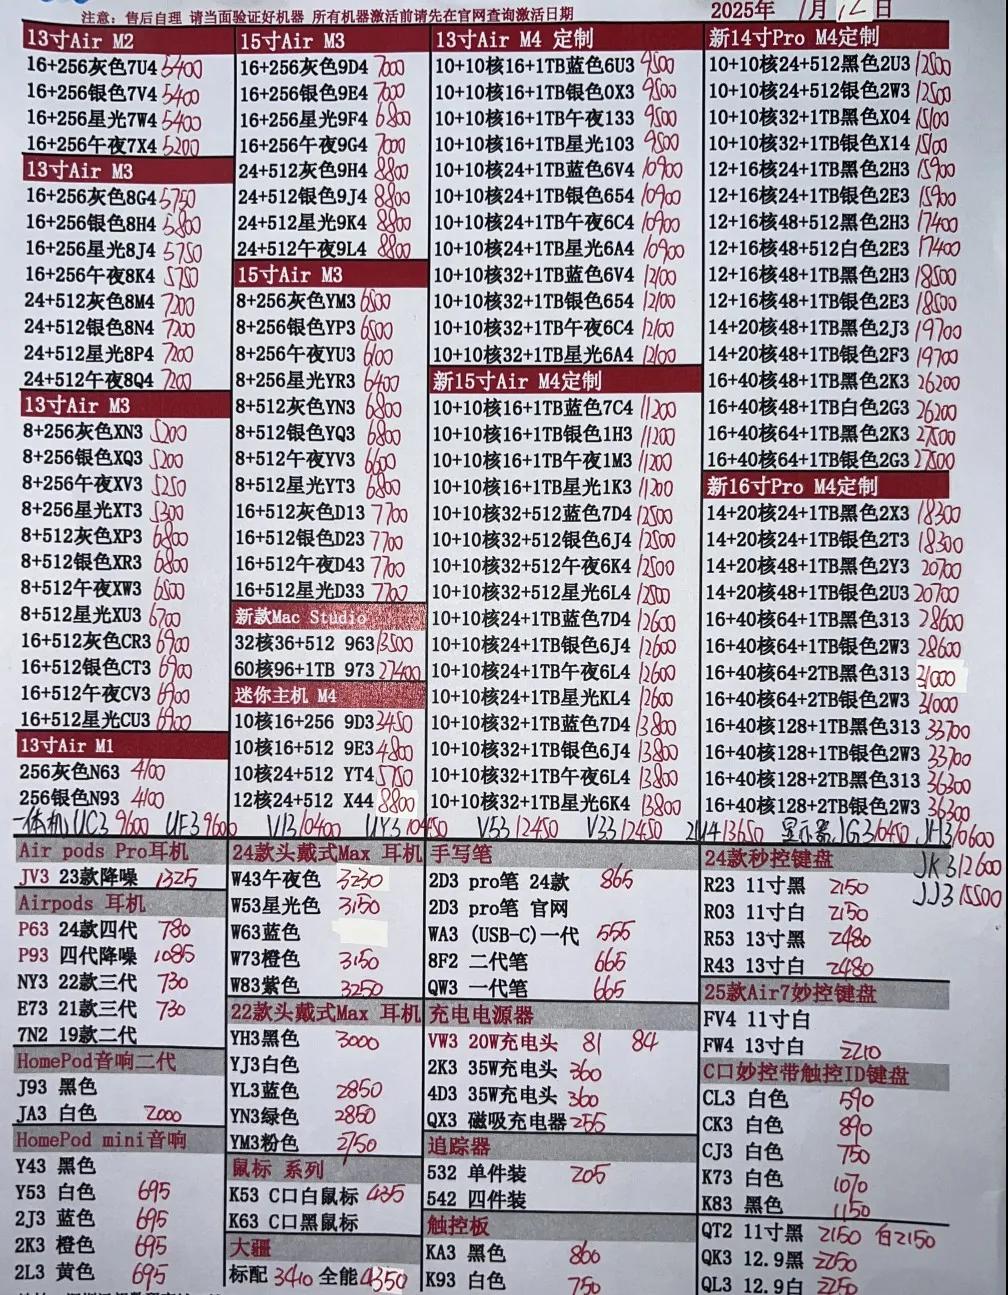 注意: 售后自理 请当面验证好机器 所有机器激活前请先在官网查询激活日期
2025年 1月12日
13寸Air M2
16+256灰色7U4 5400
16+256银色7V4 5400
16+256星光7W4 5400
16+256午夜7X4 5200
13寸Air M3
16+256灰色8G4 5750
16+256银色8H4 5800
16+256星光8J4 5750
16+256午夜8K4 5750
24+512灰色8M4 7200
24+512银色8N4 7200
24+512星光8P4 7200
24+512午夜8Q4 7200
13寸Air M3
8+256灰色XN3 5200
8+256银色XQ3 5200
8+256午夜XV3 5250
8+256星光XT3 5300
8+512灰色XP3 6800
8+512银色XR3 6800
8+512午夜XW3 6500
8+512星光XU3 6700
16+512灰色CR3 6900
16+512银色CT3 6900
16+512午夜CV3 6900
16+512星光CU3 6900
13寸Air M1
256灰色N63 4100
256银色N93 4100
15寸Air M3
16+256灰色9D4 7000
16+256银色9E4 7000
16+256星光9F4 6800
16+256午夜9G4 7000
24+512灰色9H4 8800
24+512银色9J4 8800
24+512星光9K4 8800
24+512午夜9L4 8800
15寸Air M3
8+256灰色YM3 6500
8+256银色YP3 6500
8+256午夜YU3 6100
8+256星光YR3 6400
8+512灰色YN3 6800
8+512银色YQ3 6800
8+512午夜YV3 6600
8+512星光YT3 6800
16+512灰色D13 7700
16+512银色D23 7700
16+512午夜D43 7700
16+512星光D33 7700
新款Mac Studio
32核36+512 963 13500
60核96+1TB 973 27400
迷你主机 M4
10核16+256 9D3 3450
10核16+512 9E3 4800
10核24+512 YT4 5750
12核24+512 X44 8800
13寸Air M4 定制
10+10核16+1TB蓝色6U3 9500
10+10核16+1TB银色0X3 9500
10+10核16+1TB午夜133 9500
10+10核16+1TB星光103 9500
10+10核24+1TB蓝色6V4 10900
10+10核24+1TB银色654 10900
10+10核24+1TB午夜6C4 10900
10+10核24+1TB星光6A4 10900
10+10核32+1TB蓝色6V4 12100
10+10核32+1TB银色654 12100
10+10核32+1TB午夜6C4 12100
10+10核32+1TB星光6A4 12100
新15寸Air M4定制
10+10核16+1TB蓝色7C4 11200
10+10核16+1TB银色1H3 11200
10+10核16+1TB午夜1M3 11200
10+10核16+1TB星光1K3 11200
10+10核32+512蓝色7D4 12500
10+10核32+512银色6J4 12500
10+10核32+512午夜6K4 12500
10+10核32+512星光6L4 12500
10+10核24+1TB蓝色7D4 12600
10+10核24+1TB银色6J4 12600
10+10核24+1TB午夜6L4 12600
10+10核24+1TB星光KL4 12600
10+10核32+1TB蓝色7D4 13800
10+10核32+1TB银色6J4 13800
10+10核32+1TB午夜6L4 13800
10+10核32+1TB星光6K4 13800
新14寸Pro M4定制
10+10核24+512黑色2U3 12500
10+10核24+512银色2W3 12500
10+10核32+1TB黑色X04 15100
10+10核32+1TB银色X14 15100
12+16核24+1TB黑色2H3 15900
12+16核24+1TB银色2E3 15900
12+16核48+512黑色2H3 17400
12+16核48+512白色2E3 17400
12+16核48+1TB黑色2H3 18500
12+16核48+1TB银色2E3 18500
14+20核48+1TB黑色2J3 19700
14+20核48+1TB银色2F3 19700
16+40核48+1TB黑色2K3 26200
16+40核48+1TB白色2G3 26200
16+40核64+1TB黑色2K3 27500
16+40核64+1TB银色2G3 27500
新16寸Pro M4定制
14+20核24+1TB黑色2X3 18300
14+20核24+1TB银色2T3 18300
14+20核48+1TB黑色2Y3 20700
14+20核48+1TB银色2U3 20700
16+40核64+1TB黑色313 28600
16+40核64+1TB银色2W3 28600
16+40核64+2TB黑色313 31000
16+40核64+2TB银色2W3 31000
16+40核128+1TB黑色313 33700
16+40核128+1TB银色2W3 33700
16+40核128+2TB黑色313 36300
16+40核128+2TB银色2W3 36300
一体机 UC3 9600 UF3 9600 V13 10400 UY3 10450 V53 12450 V33 12450 2V4 13650 显示器 JG3 10450 JH3 10600
JK3 12600
JJ3 15500
Air pods Pro耳机
JV3 23款降噪 1325
Airpods 耳机
P63 24款四代 780
P93 四代降噪 1085
NY3 22款三代 730
E73 21款三代 730
7N2 19款二代
HomePod音响二代
J93 黑色
JA3 白色 2000
HomePod mini音响
Y43 黑色
Y53 白色 695
2J3 蓝色 695
2K3 橙色 695
2L3 黄色 695
24款头戴式Max 耳机
W43午夜色 3230
W53星光色 3150
W63蓝色
W73橙色 3150
W83紫色 3250
22款头戴式Max 耳机
YH3黑色 3000
YJ3白色
YL3蓝色 2850
YN3绿色 2850
YM3粉色 2750
鼠标 系列
K53 C口白鼠标 435
K63 C口黑鼠标
大疆
标配 3410 全能 4350
手写笔
2D3 pro笔 24款 865
2D3 pro笔 官网
WA3 (USB-C)一代 555
8F2 二代笔 665
QW3 一代笔 665
充电电源器
VW3 20W充电头 81 84
2K3 35W充电头 360
4D3 35W充电头 360
QX3 磁吸充电器 255
追踪器
532 单件装 205
542 四件装
触控板
KA3 黑色 860
K93 白色 750
24款秒控键盘
R23 11寸黑 2150
R03 11寸白 2150
R53 13寸黑 2480
R43 13寸白 2480
25款Air7妙控键盘
FV4 11寸白
FW4 13寸白 2210
C口妙控带触控ID键盘
CL3 白色 590
CK3 白色 890
CJ3 白色 750
K73 白色 1070
K83 黑色 1150
QT2 11寸黑 2150 白2150
QK3 12.9黑 2250
QL3 12.9白 2250